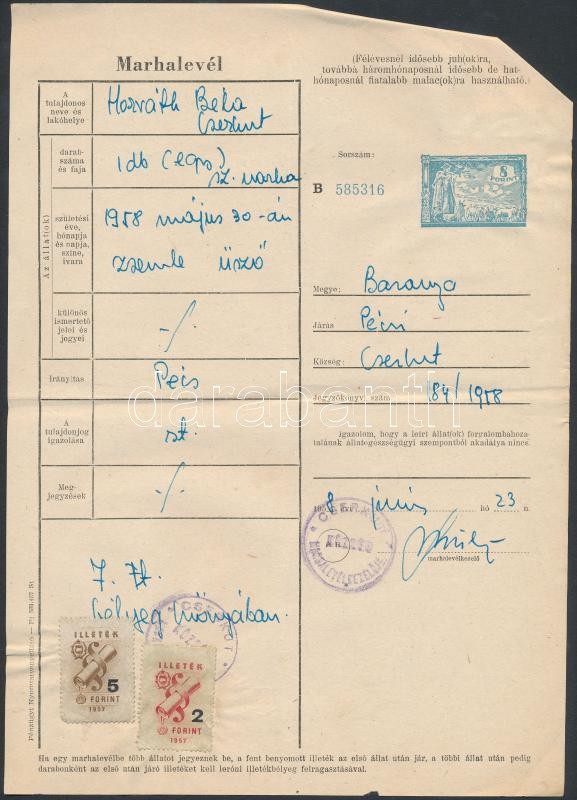 Marhalevél
(Félévesnél idősebb juh(ok)ra,
továbbá háromhónaposnál idősebb de hat-
hónaposnál fiatalabb malac(ok)ra használható.)
A
tulajdonos
neve és
lakóhelye
Horváth Béla
Cserkút
darab-
száma
és faja
1 db (egy)
sz. marha
Az állat(ok)
születési
éve,
hónapja
és napja,
színe,
ivara
1958 május 30-án
zsemle üsző
különös
ismertető
jelei és
jegyei
-/-
Irányítás
Pécs
A
tulajdonjog
igazolása
st.
Meg-
jegyzések
-/-
Sorszám:
B 585316
8
FORINT
Megye: Baranya
Járás Pécsi
Község: Cserkút
Jegyzőkönyvi szám 84/1958
Igazolom, hogy a leírt állat(ok) forgalombahoza-
talának állategészségügyi szempontból akadálya nincs.
195 8 évi június hó 23 n.
marhalevélkezelő
CSERKÚT
KÖZSÉG
MARHALEVÉLKEZELŐJE
7. Ft.
bélyeg hiányában.
CSERKÚT
KÖZSÉG
ILLETÉK
5
FORINT
1957
ILLETÉK
2
FORINT
1957
Ha egy marhalevélbe több állatot jegyeznek be, a fent benyomott illeték az első állat után jár, a többi állat után pedig
darabonként az első után járó illetéket kell leróni illetékbélyeg felragasztásával.
darabanth